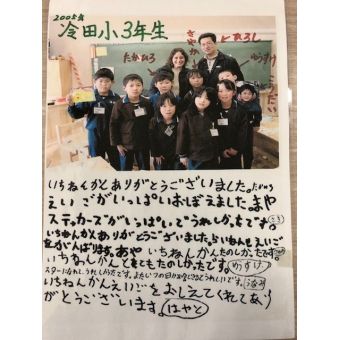 2005年
冷田小3年生
さやか
ひろし
たかひろ
ゆうすけ
こうだい
いちねんかんありがとうございました。たかひろ
えいごがいっぱいおぼえました。まや
ステッカーズがいっぱいでうれしかったです。
いちねんかんありがとうございました。らいねんもえいご
をがんばります。あや いちねんかんたのしかったです
いちねんかんとてもたのしかったです。ゆうすけ
スターになれて、うれしかったです。
いちねんかんえいごをおしえてくれてあり
がとうございます。はやと